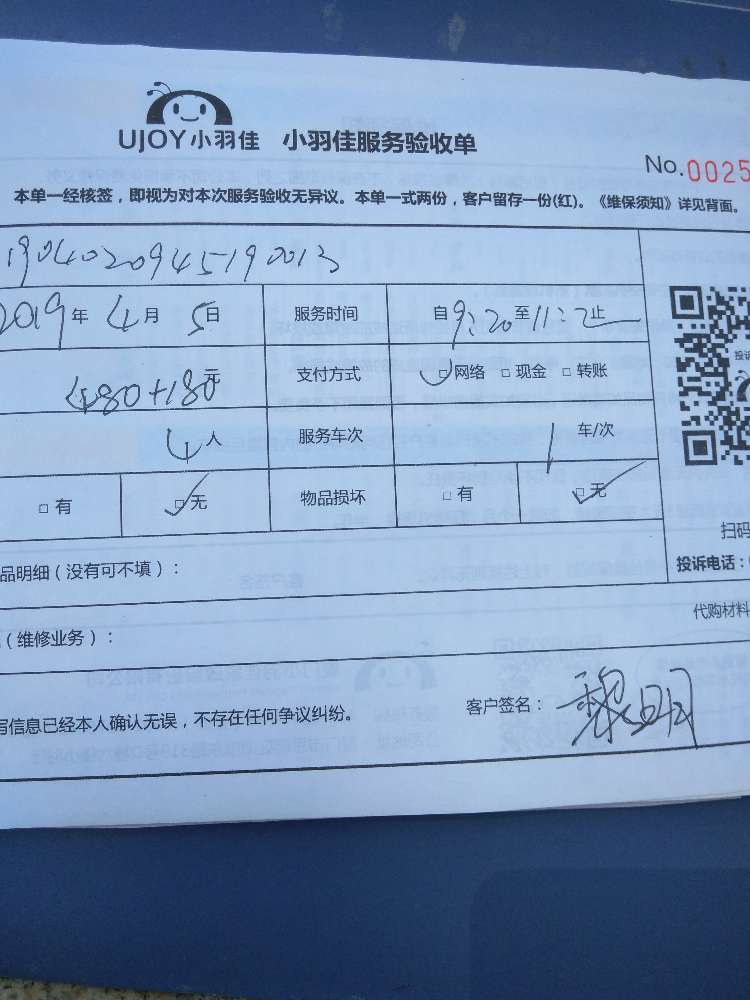 UJOY小羽佳 小羽佳服务验收单
No.0025
本单一经核签，即视为对本次服务验收无异议。本单一式两份，客户留存一份(红)。《维保须知》详见背面。
1904020945190013
2019年 4月 5日 服务时间 自9:20至11:2止
480+180元 支付方式 □网络 □现金 □转账
4人 服务车次 1车/次
□有 □无 物品损坏 □有 □无
扫码
品明细（没有可不填）：
投诉电话：
代购材料
（维修业务）：
写信息已经本人确认无误，不存在任何争议纠纷。 客户签名：